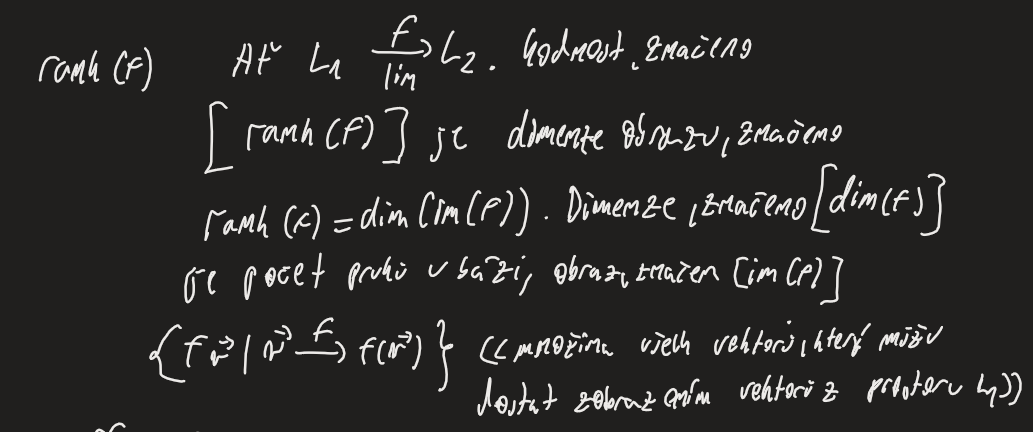 rank (f) Ať L₁ \xrightarrow[lin]{f} L₂. hodnost, značeno
[rank (f)] je dimenze obrazu, značeno
rank (f) = dim (im(f)). Dimenze, značeno [dim(f)]
je počet prvků v bázi, obraz, značen [im(f)]
{f \vec{v} | \vec{v} \xrightarrow{f} f(\vec{v})} ((množina všech vektorů, který můžu
dostat zobrazením vektorů z prostoru L₁))